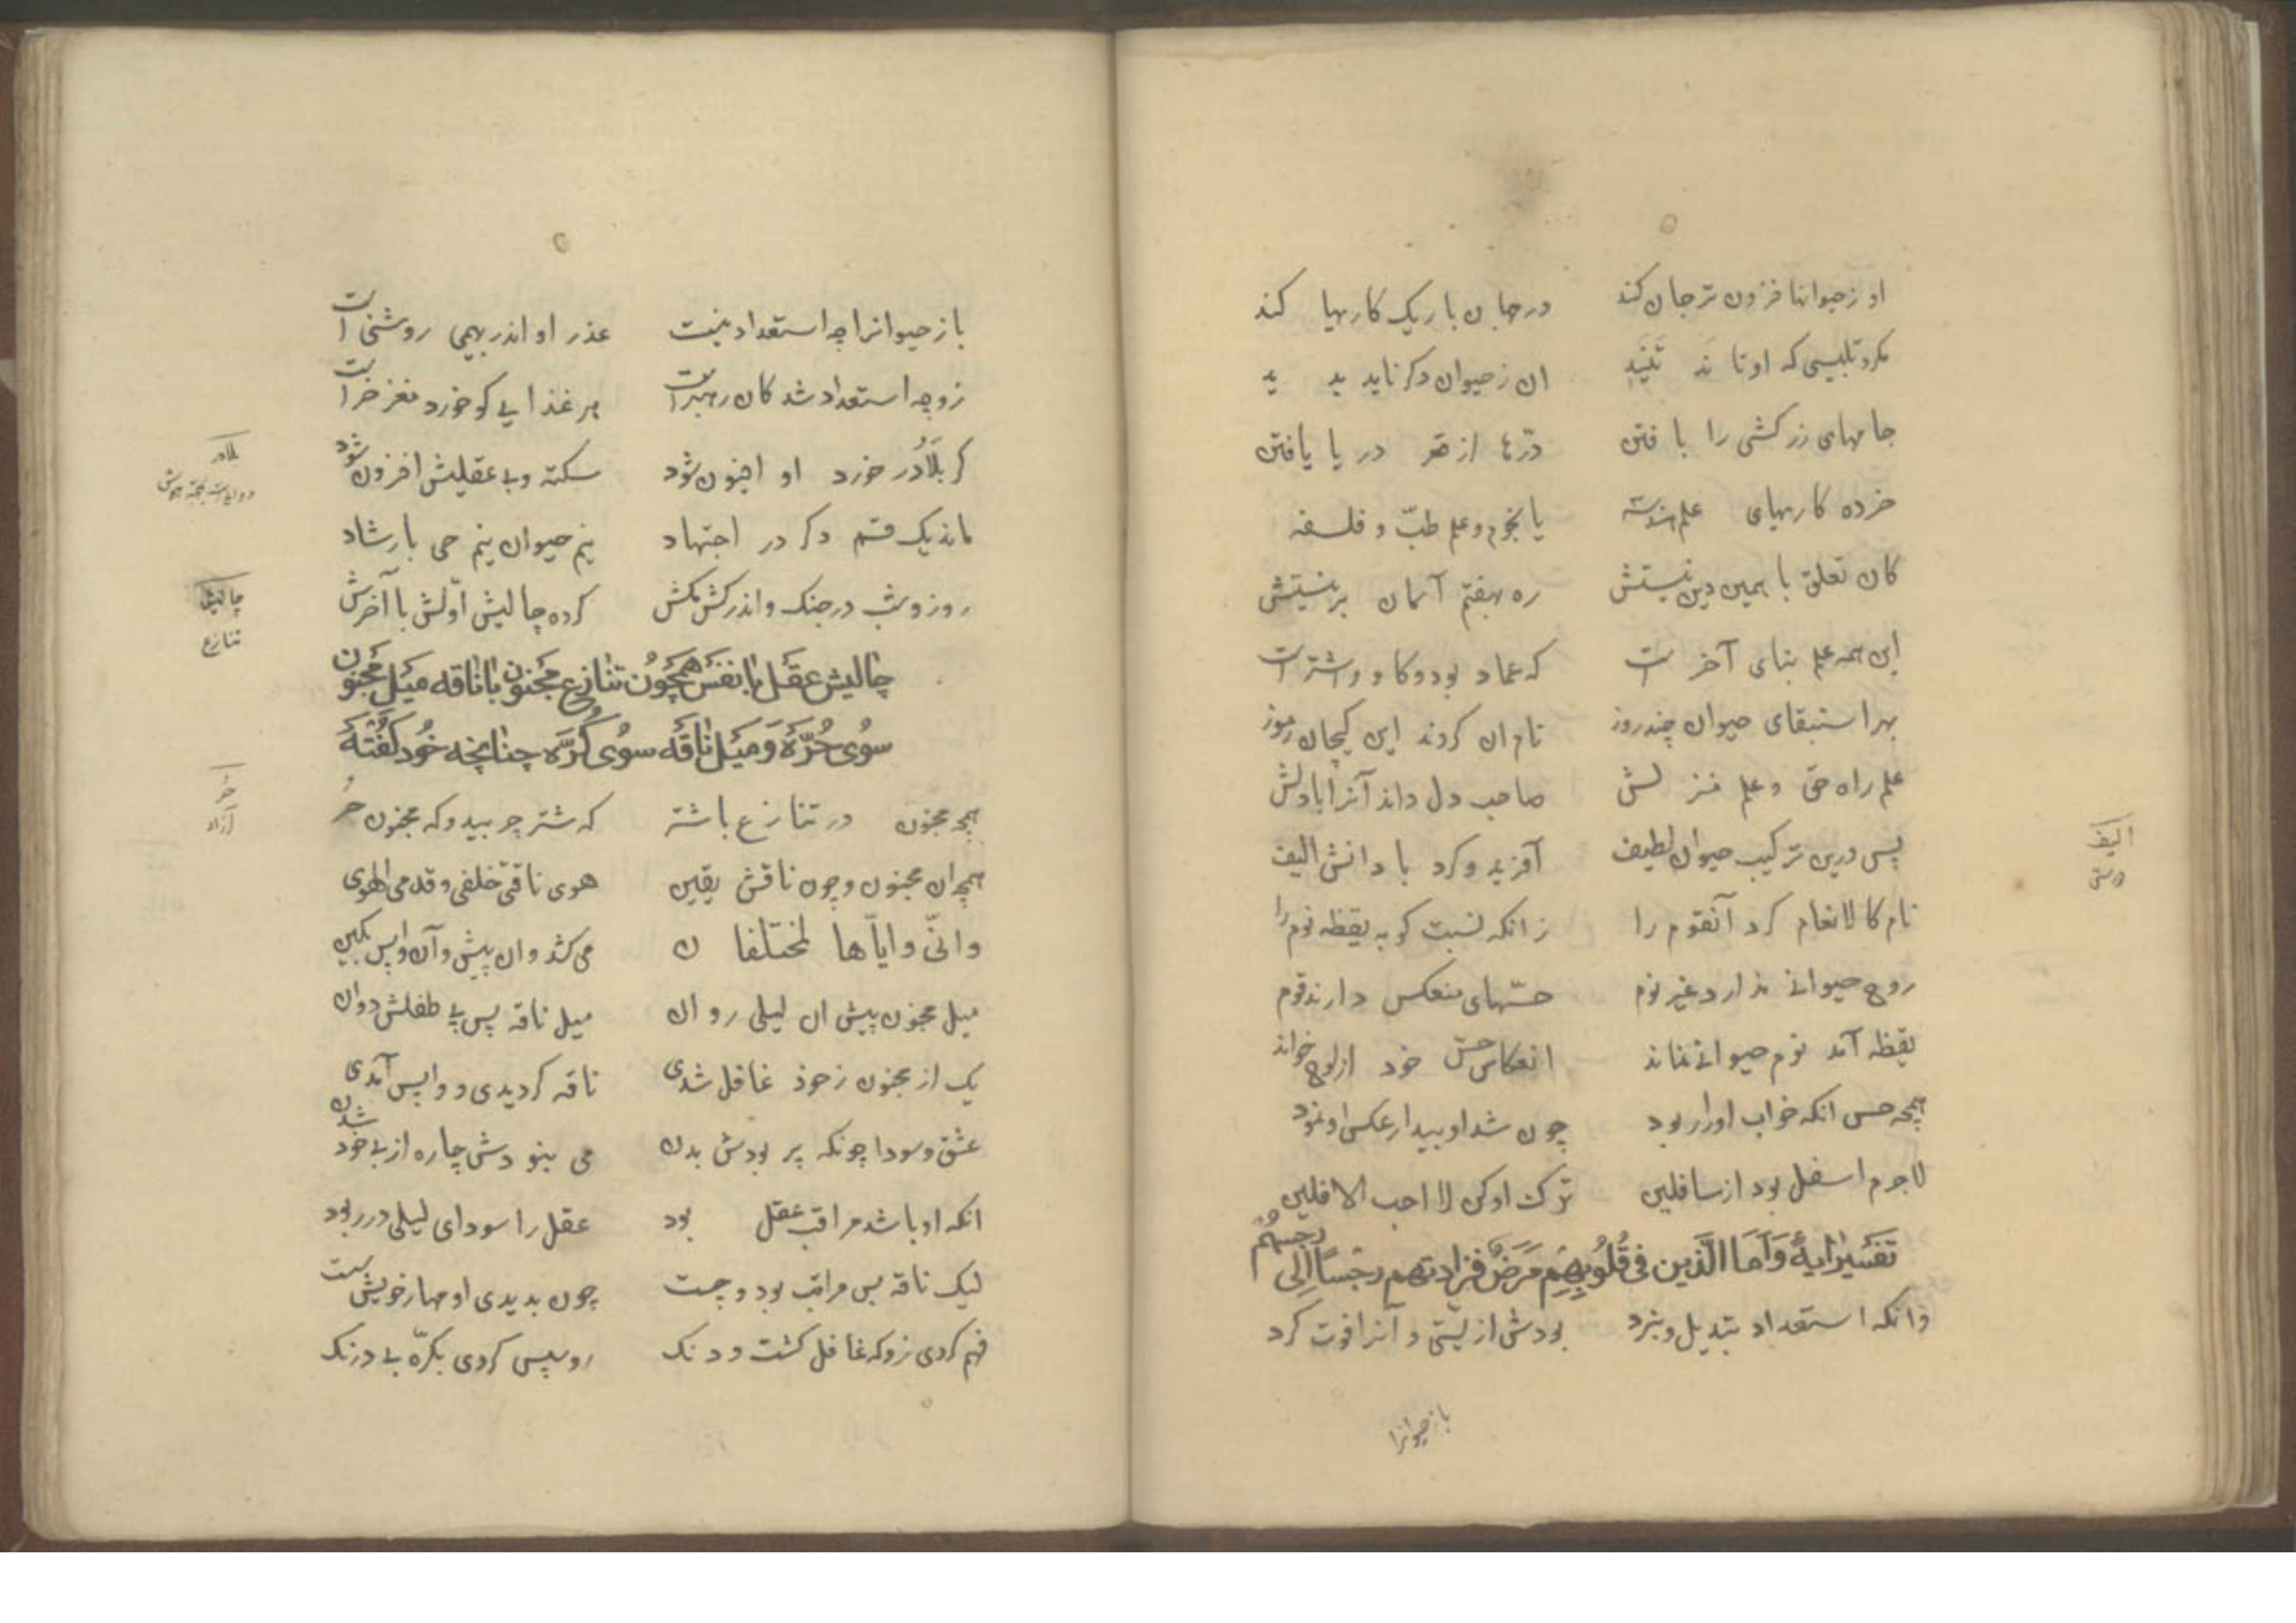 او ز حیوانها فزون تر جان کند در جهان باریک کاریها کند
مکر و تلبیسی که او تا ند تَنَید ان ز حیوان دکر ناید بد ید
جامهای زرکشی را با فتن درّ ها از قعر در یا یافتن
خرده کاریهای علم هندسه یا نجوم و علم طبّ و فلسفه
کان تعلق با همین دنیستش ره بهفتم آسمان بر نیستش
این همه علم بنای آخر ست که عماد بود و کا و و اشتر ست
بهر استبقای حیوان چند روز نام ان کردند این کیجان رموز
علم راه حق و علم منز لش صاحب دل داند آنرا با دلش
پس درین ترکیب حیوان لطیف آفرید و کرد با دانش الیف
نام کالانعام کرد آنقوم را زانکه نسبت کو به یقظه نوم را
روح حیوانی ندارد غیر نوم حسّهای منعکس دارند قوم
یقظه آمد نوم حیوانی نماند انعکاس حسّ خود از لوح خواند
همچه حس انکه خواب اورار بود چون شد او بیدار عکس او نمود
لاجرم اسفل بود از سافلین ترک او کن لا احب الافلین
تَفسیر اٰیه وَاَمَا الَّذین فی قُلُوبِهِم مَرَضٌ فَزادتهم رِجساً اِلی رِجسِهُم
زانکه استعداد تبدیل و نبرد بودش از پستی و آنرا فوت کرد
باز حیوانرا
الیف
باز حیوانرا چه استعداد نیست عذر او اندر بهیمی روشنی است
زو چه استعداد شد کان رهبرست هر غذایی کو خورد مغز خر است
کر بَلاُدر خورد او افیون شود سکته و بی عقلیش افزون شود
ماند یک قسم دکر در اجتهاد نیم حیوان نیم حی با رشاد
روز و شب در جنک و اندر کش مکش کرده چالیش اوّلش با آخرش
چالیش عقل با نفس همچون تنازع مجنون با ناقه میل مجنون
سوی حُرّه وَ میل ناقه سوی کُرّه چنانچه خود کفته
همچه مجنون در تنازع با شتر که شتر چر بید و که مجنون حُر
همچه ان مجنون و چون ناقش یقین هوی ناقتی خلفی و قدمی الهوی
وانّی وایّا ها لمختلفا ن می کشد و ان پیش و آن واپس بکین
میل مجنون پیش ان لیلی روان میل ناقه پس پی طفلش دوان
یک از مجنون ز خود غافل شدی ناقه کردیدی و واپس آمدی
عشق و سودا چونکه پر بودش بدن می نبودش چاره از بی خود شدن
انکه او باشد مراقب عقل بود عقل را سودای لیلی در ربود
لیک ناقه بس مراقب بود و چست چون بدیدی او مهار خویش سست
فهم کردی زو که غافل کشت و دنک رو سپس کردی بکرّه بی درنک
بلادر
چالیش
تنازع
حُر
آزاد